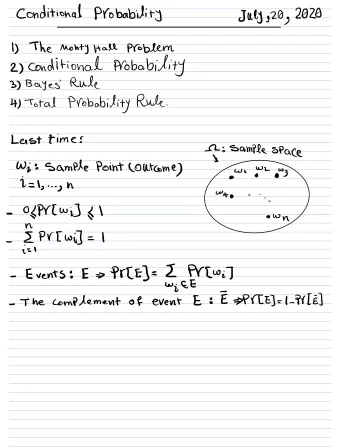 Conditional Probability July, 20, 2020
1) The Monty Hall Problem
2) Conditional Probability
3) Bayes' Rule
4) Total Probability Rule.
Last time:
Ω: Sample Space
ωi: Sample Point (Outcome)
i=1,...,n
ω1 ω2 ω3
ω4 ... ωn
- 0≤Pr[ωi]≤1
- n∑i=1 Pr[ωi] = 1
- Events: E ⇒ Pr[E] = ∑ωi∈E Pr[ωi]
- The complement of event E : Ē ⇒ Pr[E]=1-Pr[Ē]